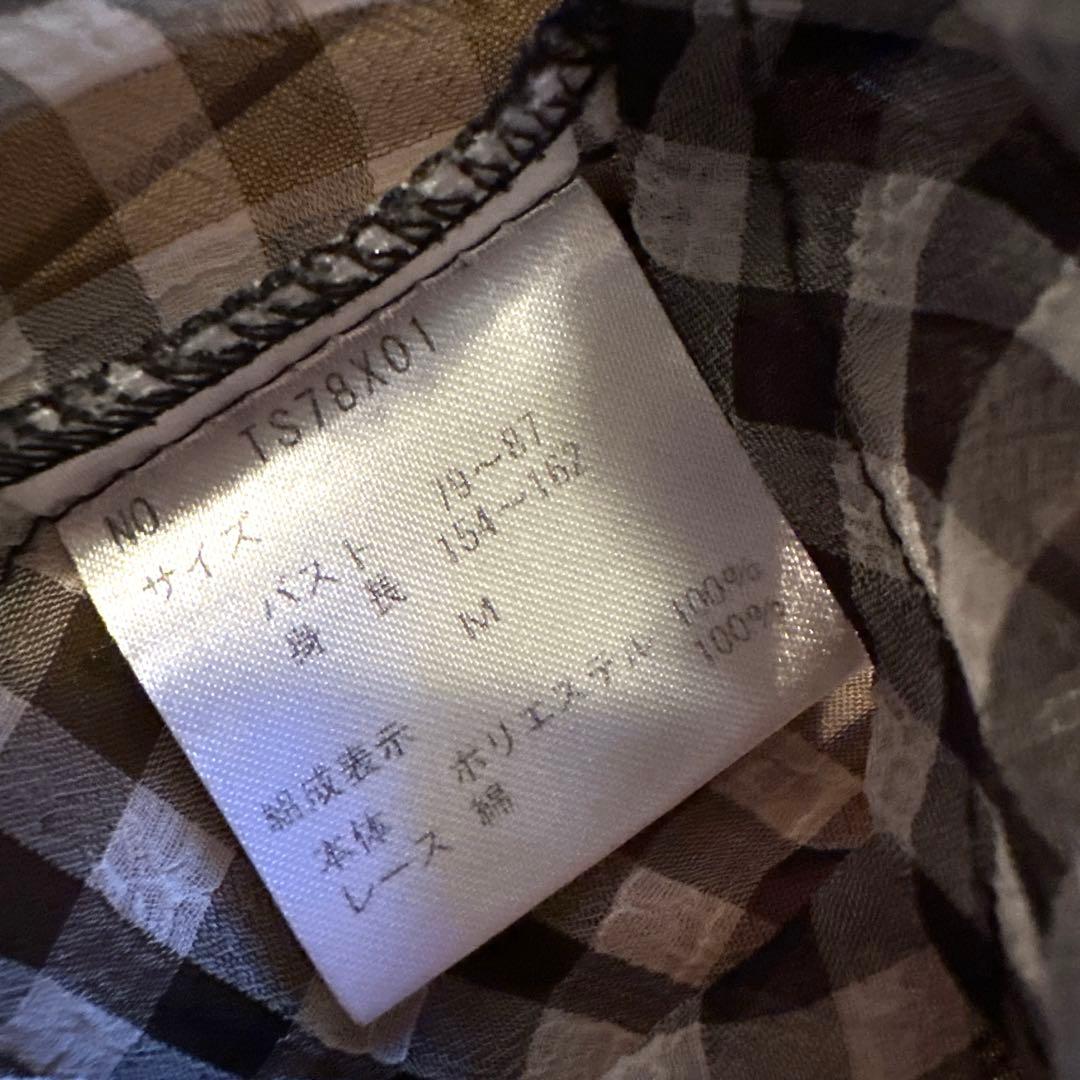 NO TS78X01
サイズ
バスト 79～87
身長 154～162
M
組成表示
本体 ポリエステル 100%
レース 綿 100%